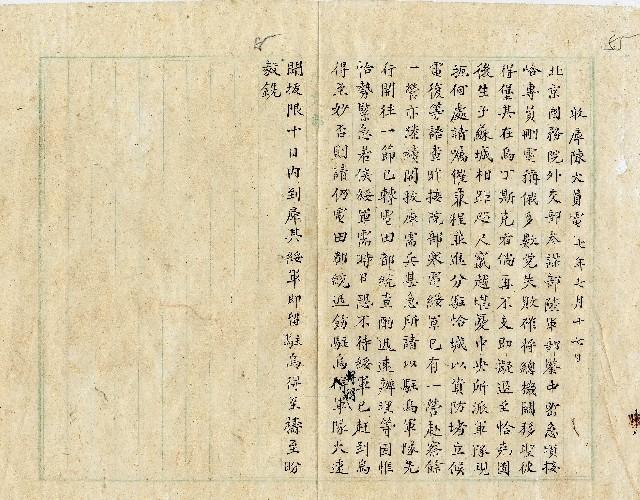 收庫陳大員電七年七月十六日
北京國務院外交部參謀部陸軍部鑒由密急頃接
恰專員刪電稱俄多數党失敗確將總機關移設彼
得堡其在烏丁斯克者倘再不支即擬退至恰克圖
後生子蘇城相距咫人竄越堪憂中央所派軍隊現
抵何處請飭催兼程並進分駐恰城以資防堵立候
電復等語查昨接院部寒電綏軍已有一營赴察餘
一營亦陸續開拔庫需兵甚急所請以駐烏軍隊先
行開往一節已轉電田都統查酌迅速辦理等因惟
恰勢緊急若候綏軍需時日恐不待綏軍已趕到烏
得至妙否則請仍電田都統迅飭駐烏軍隊火速
開拔限十日內到庫其綏軍即留駐烏得至禱至盼
毅銑